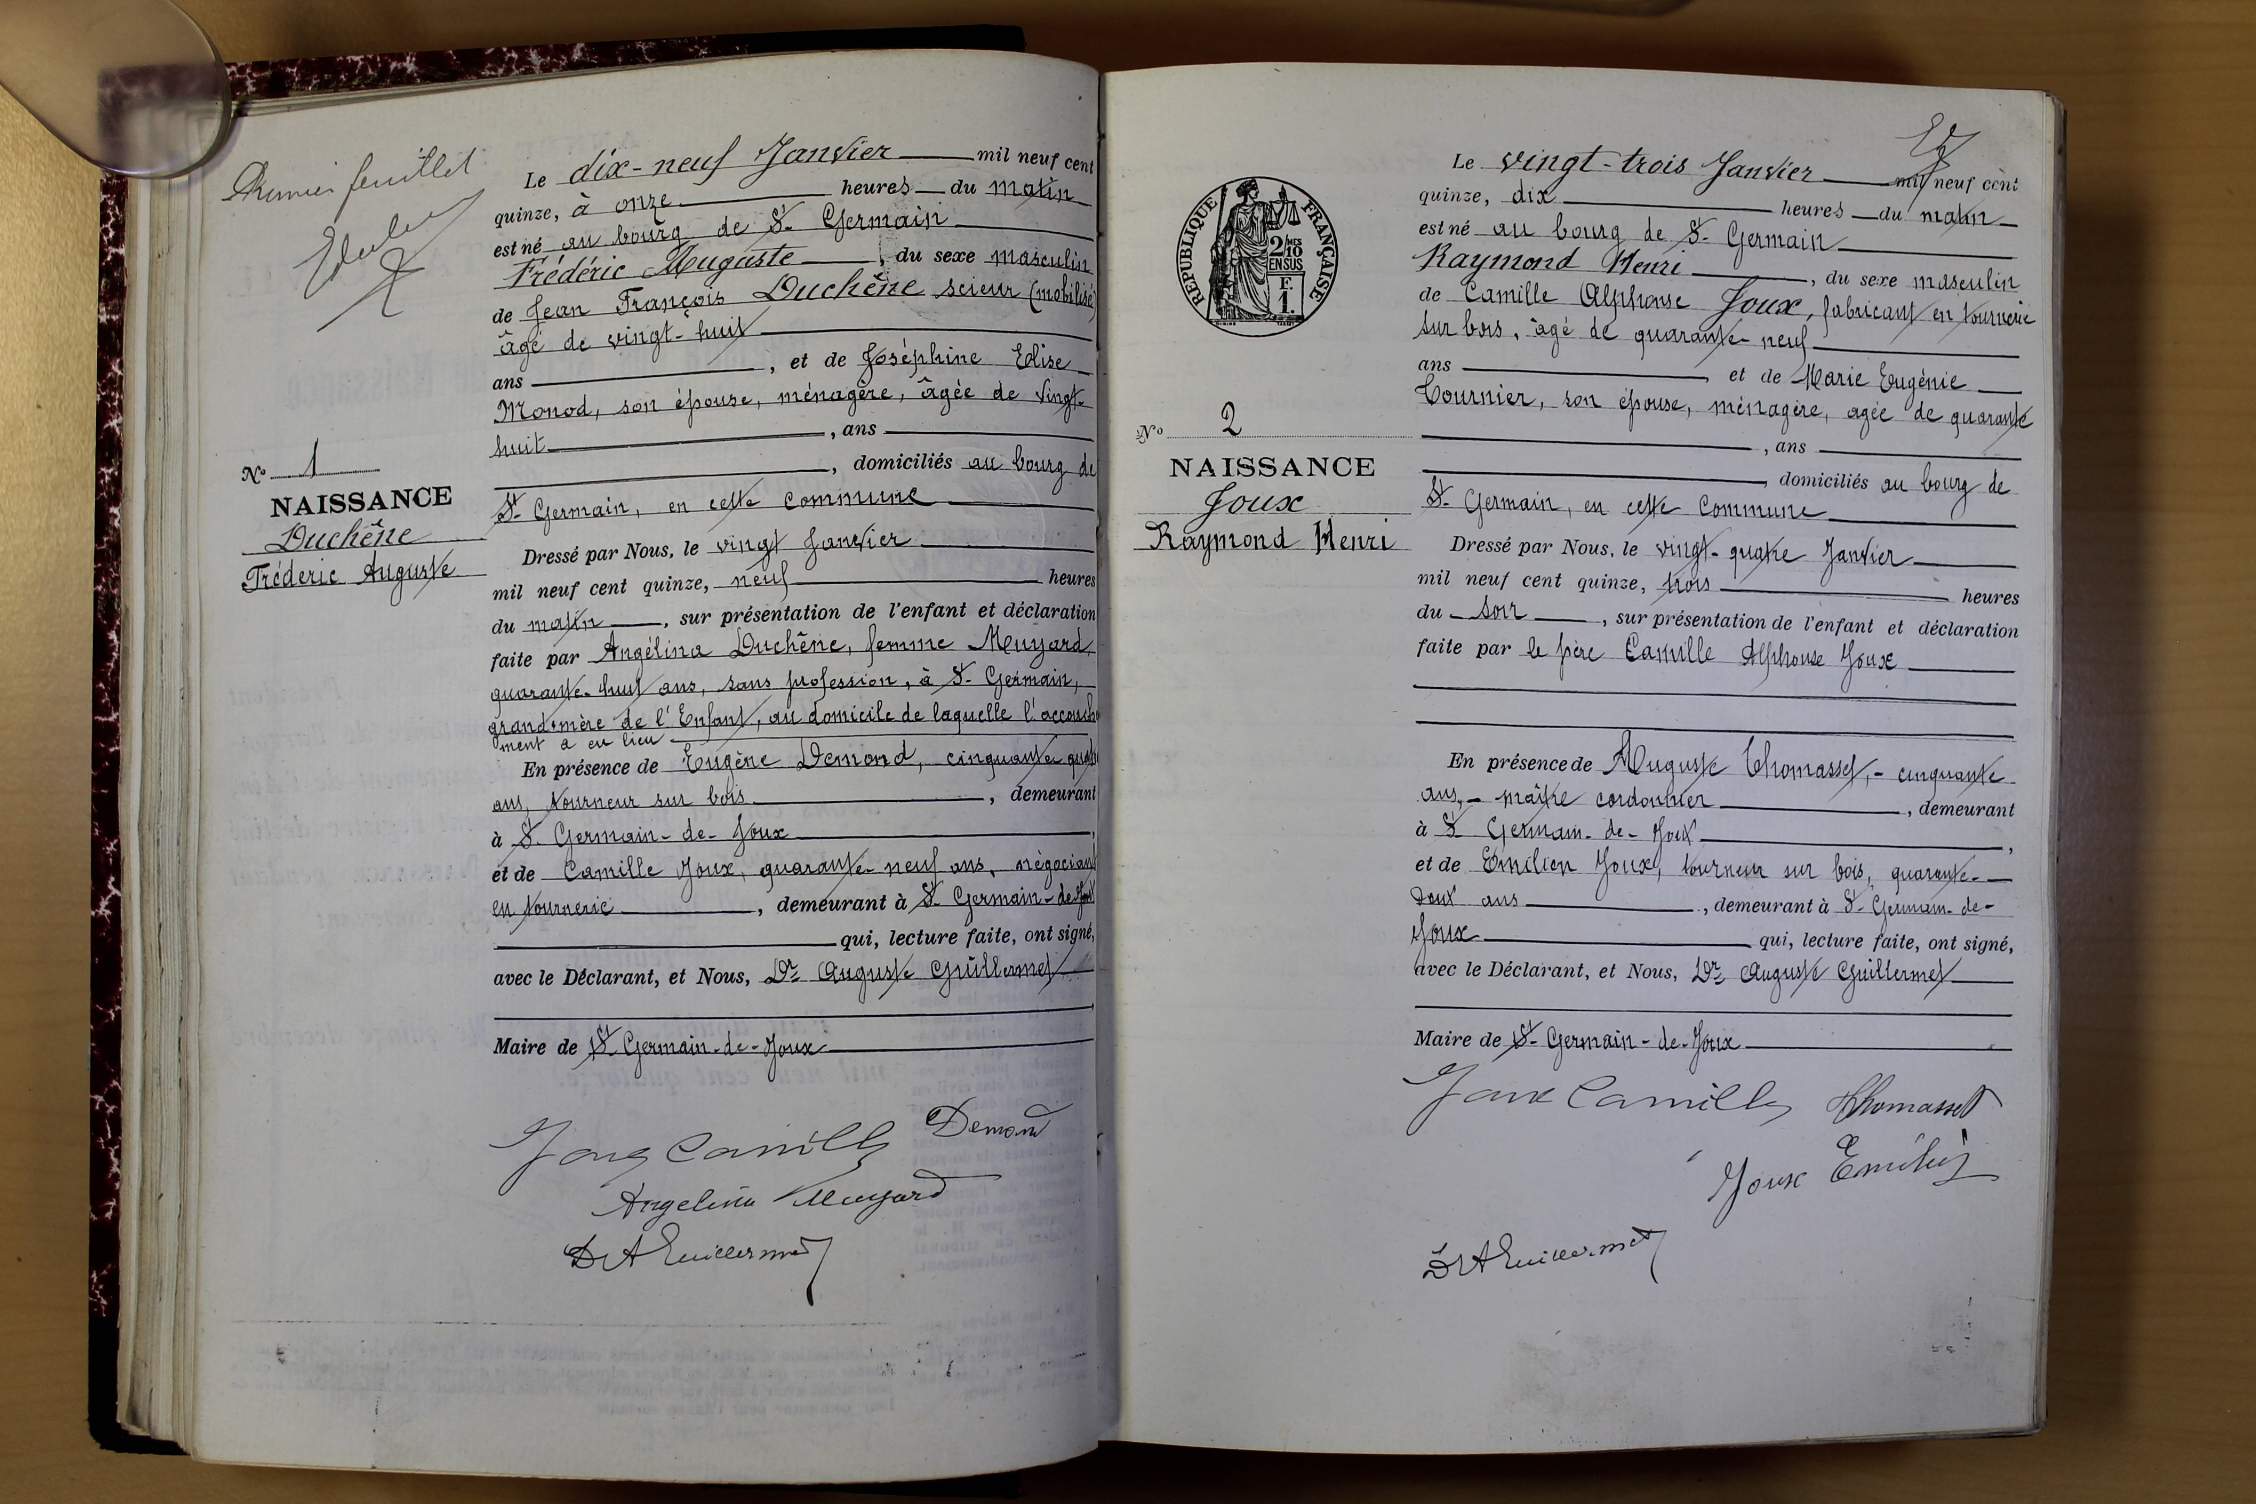 Premier feuillet
N° 1
NAISSANCE
Duchêne
Fréderic Auguste
Le dix-neuf Janvier mil neuf cent
quinze, à onze heures du matin
est né au bourg de St Germain
Frédéric Auguste, du sexe masculin
de Jean François Duchêne scieur (mobilisé)
âgé de vingt-huit
ans, et de Joséphine Elise
Monod, son épouse, ménagère, âgée de vingt-
huit, ans
, domiciliés au bourg de
St Germain, en cette commune
Dressé par Nous, le vingt Janvier
mil neuf cent quinze, neuf heures
du matin, sur présentation de l'enfant et déclaration
faite par Angélina Duchêne, femme Muyard,
quarante-huit ans, sans profession, à St Germain,
grand-mère de l'Enfant, au domicile de laquelle l'accouche
ment a eu lieu
En présence de Eugène Demond, cinquante quatre
ans, tourneur sur bois, demeurant
à St Germain-de-Joux,
et de Camille Joux, quarante-neuf ans, négociant
en tournerie, demeurant à St Germain-de-Joux
qui, lecture faite, ont signé,
avec le Déclarant, et Nous, Dr Auguste Guillermet
Maire de St Germain-de-Joux
Joux Camille Demond
Angelina Muyard
Dr A Guillermet
RÉPUBLIQUE FRANÇAISE
2/MES
10
EN SUS
F.
1.
N° 2
NAISSANCE
Joux
Raymond Henri
Le vingt-trois Janvier mil neuf cent
quinze, dix heures du matin
est né au bourg de St Germain
Raymond Henri, du sexe masculin
de Camille Alphonse Joux, fabricant en tournerie
sur bois, âgé de quarante-neuf
ans et de Marie Eugénie
Tournier, son épouse, ménagère, agée de quarante
, ans
domiciliés au bourg de
St Germain, en cette Commune
Dressé par Nous, le vingt-quatre Janvier
mil neuf cent quinze, trois heures
du soir, sur présentation de l'enfant et déclaration
faite par le père Camille Alphonse Joux
En présence de Auguste Thomasset,- cinquante
ans,- maître cordonnier, demeurant
à St Germain-de-Joux,
et de Emilien Joux, tourneur sur bois, quarante-
deux ans, demeurant à St Germain-de-
Joux qui, lecture faite, ont signé,
avec le Déclarant, et Nous, Dr Auguste Guillermet
Maire de St Germain-de-Joux
Joux Camille Thomasset
Joux Emilien
Dr A Guillermet